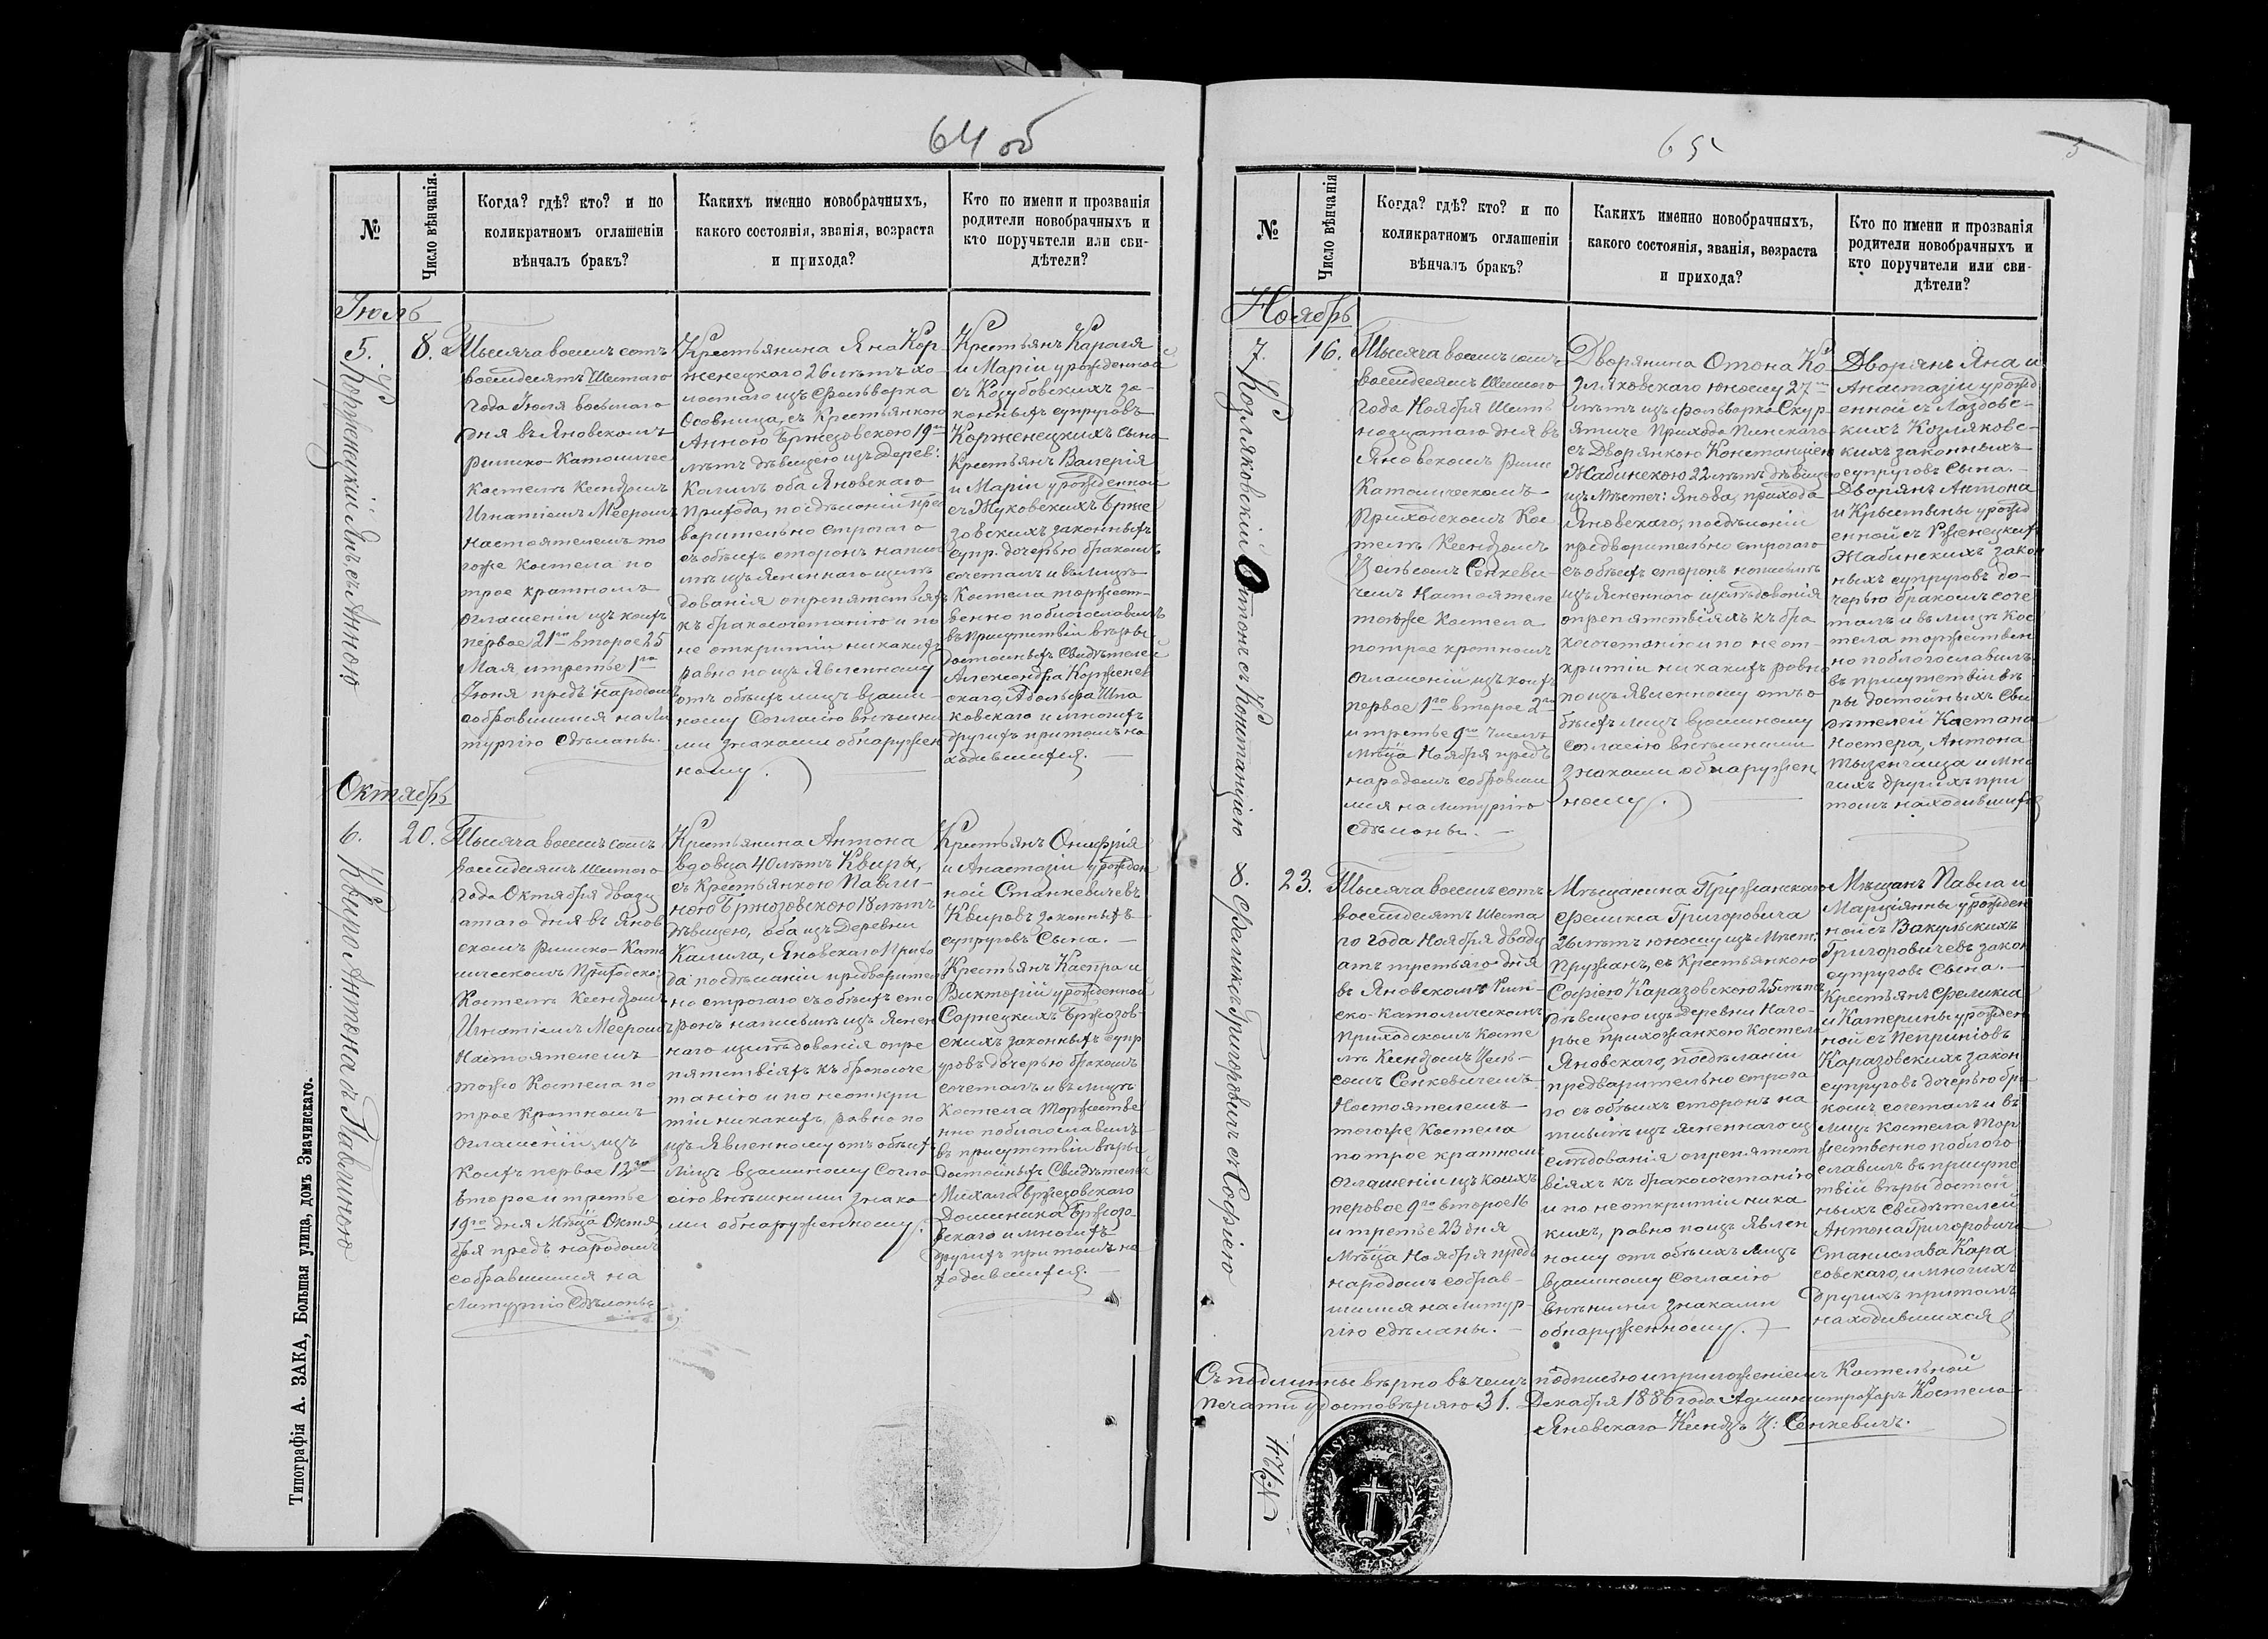 64 об
№
Число вѣнчанія.
Когда? гдѣ? кто? и по
коликратномъ оглашеніи
вѣнчалъ бракъ?
Какихъ именно новобрачныхъ,
какого состоянія, званія, возраста
и прихода?
Кто по имени и прозванія
родители новобрачныхъ и
кто поручители или сви-
дѣтели?
Іюль
5.
Корженецкій Янъ, съ Анною
8.
Тысяча восемь сотъ
восмдесятъ Шестаго
года Іюля восьмаго
дня въ Яновскомъ
Римско-Католичес
Костелѣ Ксендзомъ
Игнатіемъ Меером
настоятелемъ то
гоже Костела по
трое кратномъ
оглашеніи изъ коихъ
первое 21го второе 25
Мая, и третье 1го
Іюня предъ народомъ
собравшимся на Ли
тургію сдѣланы.
Крестьянина Яна Кор-
женецкаго 26 лѣтъ хо-
лостаго изъ Фольварка
Осовница, съ Крестьянкою
Анною Бржезовскою 19ти
лѣтъ дѣвицею изъ Дерев:
Калилъ оба Яновскаго
Прихода, посдѣланіи пред
варительно строгаго
съ обѣихъ сторонъ написм
мѣ изъясненнаго изслѣ
дованія опрепятствіяхъ
къ бракосочетанію и по
не открытіи никакихъ
равно по изъявленному
отъ обѣихъ лицъ взаим-
ному Согласію внѣшни
ми знаками обнаружен
ному.
Крестьянъ Кароля
и Маріи урожденной
съ Козубовскихъ за-
конныхъ супруговъ
Корженецкихъ сына
Крестьянъ Валерія
и Маріи урожденной
съ Жуковскихъ Брже
зовскихъ законныхъ
супр. дочерью бракомъ
сочеталъ и въ Лицѣ
Костела торжест-
венно поблагославилъ
въ присутствіи вѣры
достойныхъ Свидѣтелей
Александра Корженев
скаго, Адольфа Шпа
ковскаго и многихъ
другихъ притомъ на
ходившихся.
Октябрь
6.
Квиро Антона съ Павлиною
20.
Тысяча восемь сотъ
восмидесятъ шестаго
года Октября двадц
атаго дня въ Янов
скомъ Римско-Като
лическомъ Приходско:
Костелѣ Ксендзомъ
Игнатіемъ Мееромъ
Настоятелемъ
тогоже Костела по
трое кратномъ
оглашеніи, изъ
коихъ первое 12го
второе и третье
19го дня Мѣца Октя
бря предъ народомъ
собравшимся на
Литургію сдѣланы
Крестьянина Антона
вдовца 40 лѣтъ Квиры,
съ Крестьянкою Павли-
ною Бржозовскою 18 лѣтъ
дѣвицею, оба изъ Деревни
Калила, Яновскаго Прихо
да посдѣланіи предварител
но строгаго съ обѣихъ сто
ронъ написьмѣ изъ яснен
наго изслѣдованія опре
пятствіяхъ къ бракосоче
танію и по неоткры
тіи никакихъ, равно по
изъ Явленному отъ обѣихъ
Лицъ взаимному Согла
сію внѣшними знака
ми обнаруженному.
Крестьянъ Онифрія
и Анастазіи урожден
ной Станкевичевъ
Квировъ законныхъ
супруговъ Сына.
Крестьянъ Каспра и
Викторіи урожденной
Сарнецкихъ Бржозов-
скихъ законныхъ супр
уговъ дочерью бракомъ
сочеталъ и въ лицѣ
Костела Торжестве
нно поблагославилъ
въ присутствіи вѣры
достойныхъ Свидѣтелей
Михала Бржезовскаго
Доминика Бржозо-
вскаго и многихъ
другихъ притомъ на
ходившихся.
Типографія А. ЗАКА, Большая улица, домъ Змачинскаго.
65
№
Число вѣнчанія
Когда? гдѣ? кто? и по
коликратномъ оглашеніи
вѣнчалъ бракъ?
Какихъ именно новобрачныхъ,
какого состоянія, званія, возраста
и прихода?
Кто по имени и прозванія
родители новобрачныхъ и
кто поручители или сви-
дѣтели?
Ноябрь
7.
Козляковскій Отонъ съ Констанціею
16.
Тысяча восемь сотъ
восмдесятъ Шестого
года Ноября Шест
надцатаго дня въ
Яновскомъ Рим
Католическомъ
Приходскомъ Кос
телѣ Ксендзомъ
Цельсомъ Сенкеви
чемъ Настоятеле
тогоже Костела
потрое кратномъ
оглашеніи изъ коихъ
первое 1го второе 2го
и третье 9го Чиселъ
Мѣсца Ноября предъ
народомъ собравши
мся на литургію
сдѣланы.
Дворянина Отона Ко
зляковскаго юношу 27ми
лѣтъ изъ фольварка Скур
ятиче Прихода Пинскаго
съ Дворянкою Констанціею
Жабинскою 22 лѣтъ дѣвицею
изъ Мѣстеч: Янова, прихода
Яновскаго, посдѣланіи
предварительно строгаго
съ обѣихъ сторонъ написьмѣ
изъясненного изслѣдованія
опрепятствіяхъ къ бра
косочетанію и по не от-
крытіи никакихъ равно
по изъ Явленному отъ о
бѣихъ лицъ взаимному
согласію внѣшними
знаками обнаружен
ному.
Дворянъ Яна и
Анастазіи урожд
енной съ Лаздовс-
кихъ Козляковс-
кихъ законныхъ
супруговъ Сына.
Дворянъ Антона
и Крыстыны урожд
енной съ Рженецкихъ
Жабинскихъ закон
ныхъ супруговъ до-
черью бракомъ соче
талъ и въ лицѣ Кос
тела торжествен
но поблогославилъ
въ присутствіи вѣ
ры достойныхъ Сви
дѣтелей Каетана
Костера, Антона
Тызенгауза и мно
гихъ другихъ при
томъ находившихся
8.
Феликсъ Григоровичъ съ Софіею
23.
Тысяча восемь сотъ
восемдесятъ Шеста
го года Ноября двадц
атъ третьяго дня
въ Яновскомъ Рим-
ско-Католическомъ
Приходскомъ Косте
лѣ Ксендзомъ Цель-
сомъ Сенкевичемъ
Настоятелемъ
тогоже Костела
потрое кратномъ
оглашеніи изъ коихъ
первое 9го второе 16
и третье 23 дня
Мѣсца Ноября предъ
народомъ собрав-
шимся на литур-
гію сдѣланы.
Мѣщанина Пружанскаго
Феликса Григоровича
26 лѣтъ юношу изъ Мѣст.
Пружанъ, съ Крестьянкою
Софіею Каразовскою 25 лѣтъ
дѣвицею изъ Деревни Наго-
рые прихожанкою Костела
Яновскаго, посдѣланіи
предварительно строга
го съ обѣихъ сторонъ на
письмѣ изъ ясненнаго из
слѣдованія опрепятст
віяхъ къ бракосочетанію
и по неоткрытіи ника
кихъ, равно по изъ Явлен
ному отъ обѣихъ Лицъ
взаимному Согласію
внѣшними знаками
обнаруженному.
Мѣщанъ Павла и
Марціянны урожден
ной съ Вакульскихъ
Григоровичевъ закон
супруговъ Сына.
Крестьянъ Феликса
и Катерины урожден
ной съ Пеприніовъ
Каразовскихъ закон
супруговъ дочерью бра
комъ сочеталъ и въ
Лицѣ Костела Тор
жественно поблаго
славилъ въ присутс
твіи вѣры достой
ныхъ свидѣтелей
Антона Григоровича
Станислава Кара
совскаго, и многихъ
другихъ притомъ
находившихся
Съ подлинны вѣрно въ чемъ подписью и приложеніемъ Костельной
печати удостовѣряю 31. Декабря 1886 года Администраторъ Костела
Яновскаго Ксендзъ Ц: Сенкевичъ.
№ 124